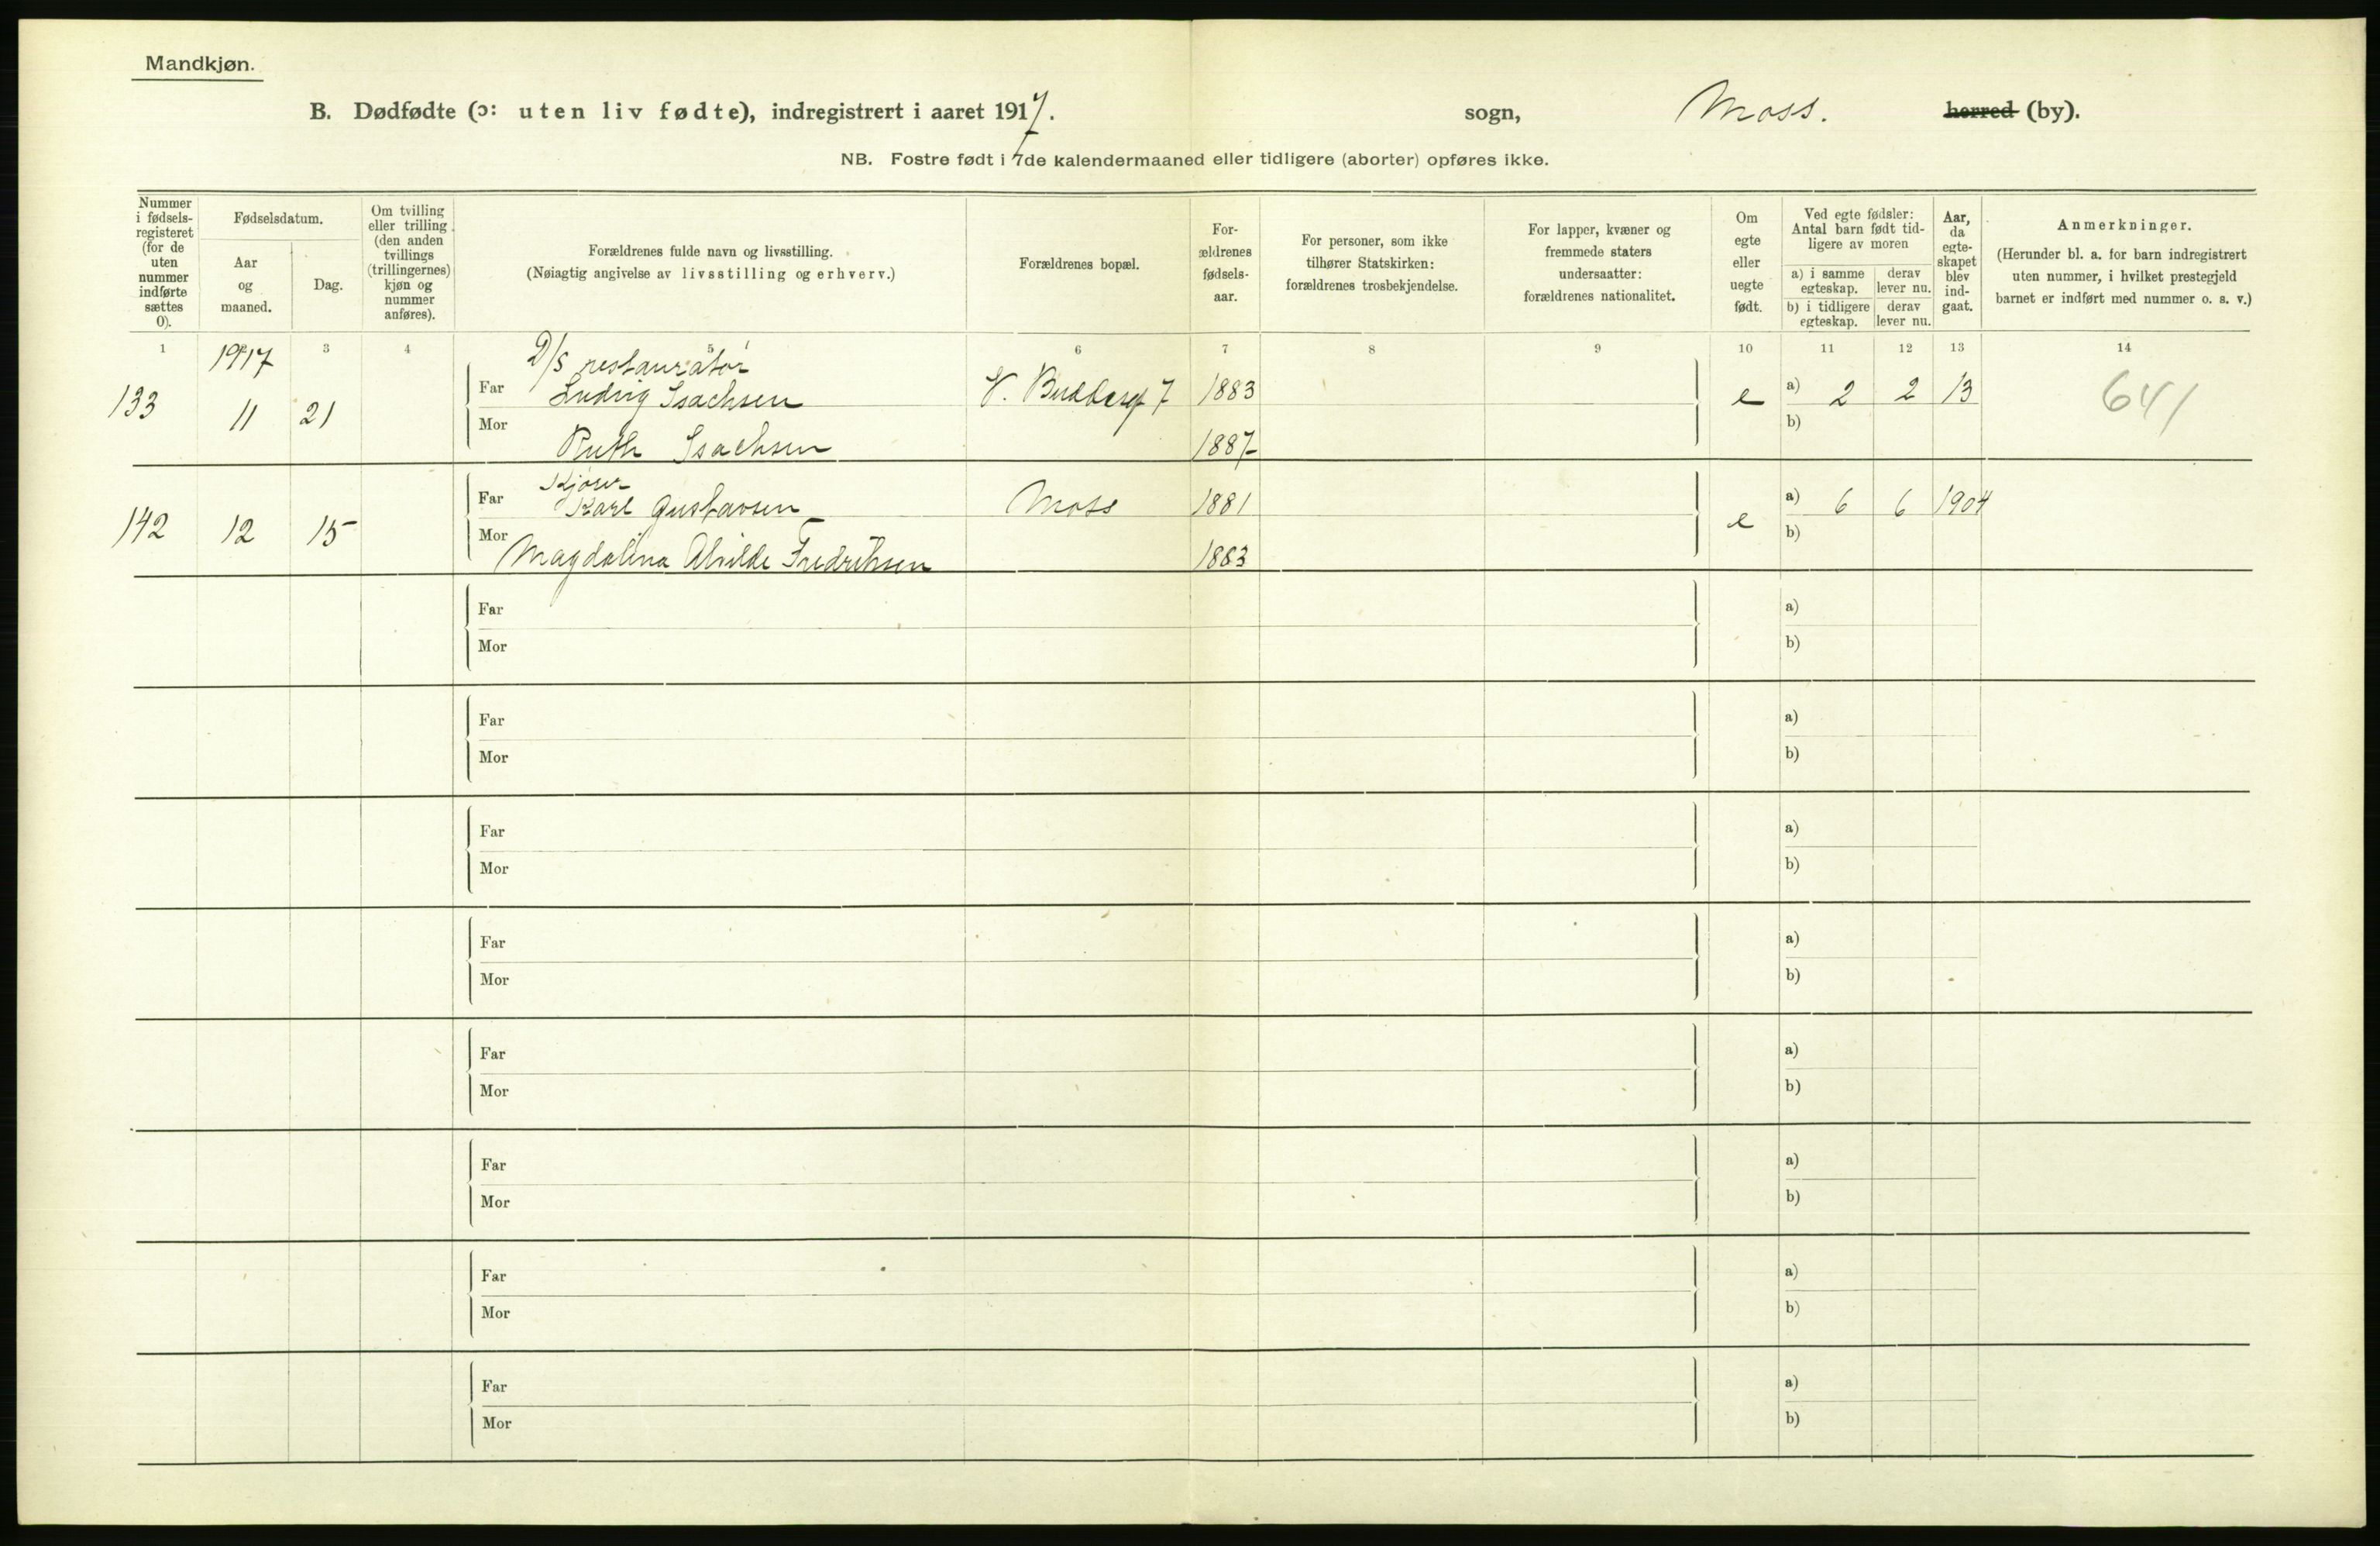 Mandkjøn.
B. Dødfødte (ɔ: uten liv fødte), indregistrert i aaret 1917. sogn, Moss. herred (by).
NB. Fostre født i 7de kalendermaaned eller tidligere (aborter) opføres ikke.
Nummer
i fødsels-
registeret
(for de
uten
nummer
indførte
sættes
0).
Fødselsdatum.
Aar
og
maaned.
Dag.
Om tvilling
eller trilling
(den anden
tvillings
(trillingernes)
kjøn og
nummer
anføres).
Forældrenes fulde navn og livsstilling.
(Nøiagtig angivelse av livsstilling og erhverv.)
Forældrenes bopæl.
For-
ældrenes
fødsels-
aar.
For personer, som ikke
tilhører Statskirken:
forældrenes trosbekjendelse.
For lapper, kvæner og
fremmede staters
undersaatter:
forældrenes nationalitet.
Om
egte
eller
uegte
født.
Ved egte fødsler:
Antal barn født tid-
ligere av moren
a) i samme
egteskap.
derav
lever nu.
b) i tidligere
egteskap.
derav
lever nu.
Aar,
da
egte-
skapet
blev
ind-
gaat.
Anmerkninger.
(Herunder bl. a. for barn indregistrert
uten nummer, i hvilket prestegjeld
barnet er indført med nummer o. s. v.)
1 3 4 5 6 7 8 9 10 11 12 13 14
1917
D/S restauratør
133 11 21 Far Ludvig Isachsen V. 7 1883 e a) 2 2 13 641
Mor Ruth Isachsen 1887 b)
Kjører
142 12 15 Far Karl Gustavsen Moss 1881 e a) 6 6 1904
Mor Magdalina Alvilde Fredriksen 1883 b)
Far a)
Mor b)
Far a)
Mor b)
Far a)
Mor b)
Far a)
Mor b)
Far a)
Mor b)
Far a)
Mor b)
Far a)
Mor b)
Far a)
Mor b)